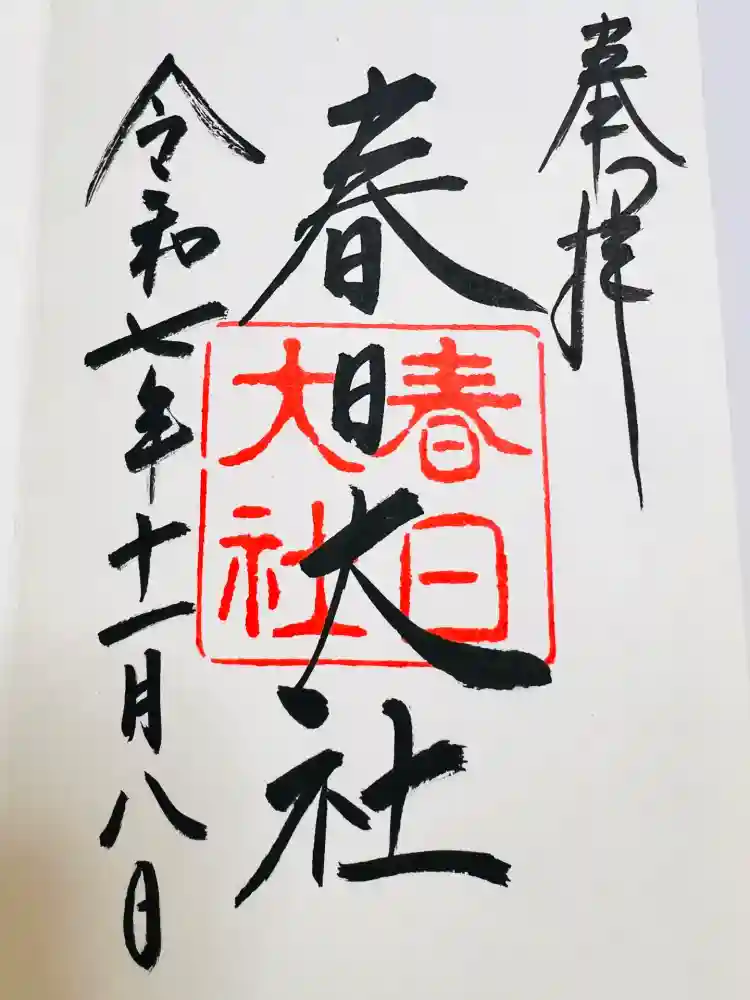 奉拝
春日大社
春日
大社
令和七年十一月八日